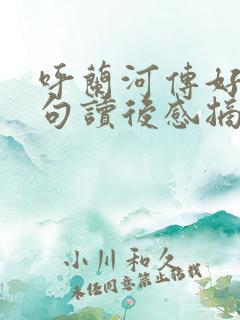 呼蘭河傳好
句讀後感摘
小川和久
未经同意禁止转载